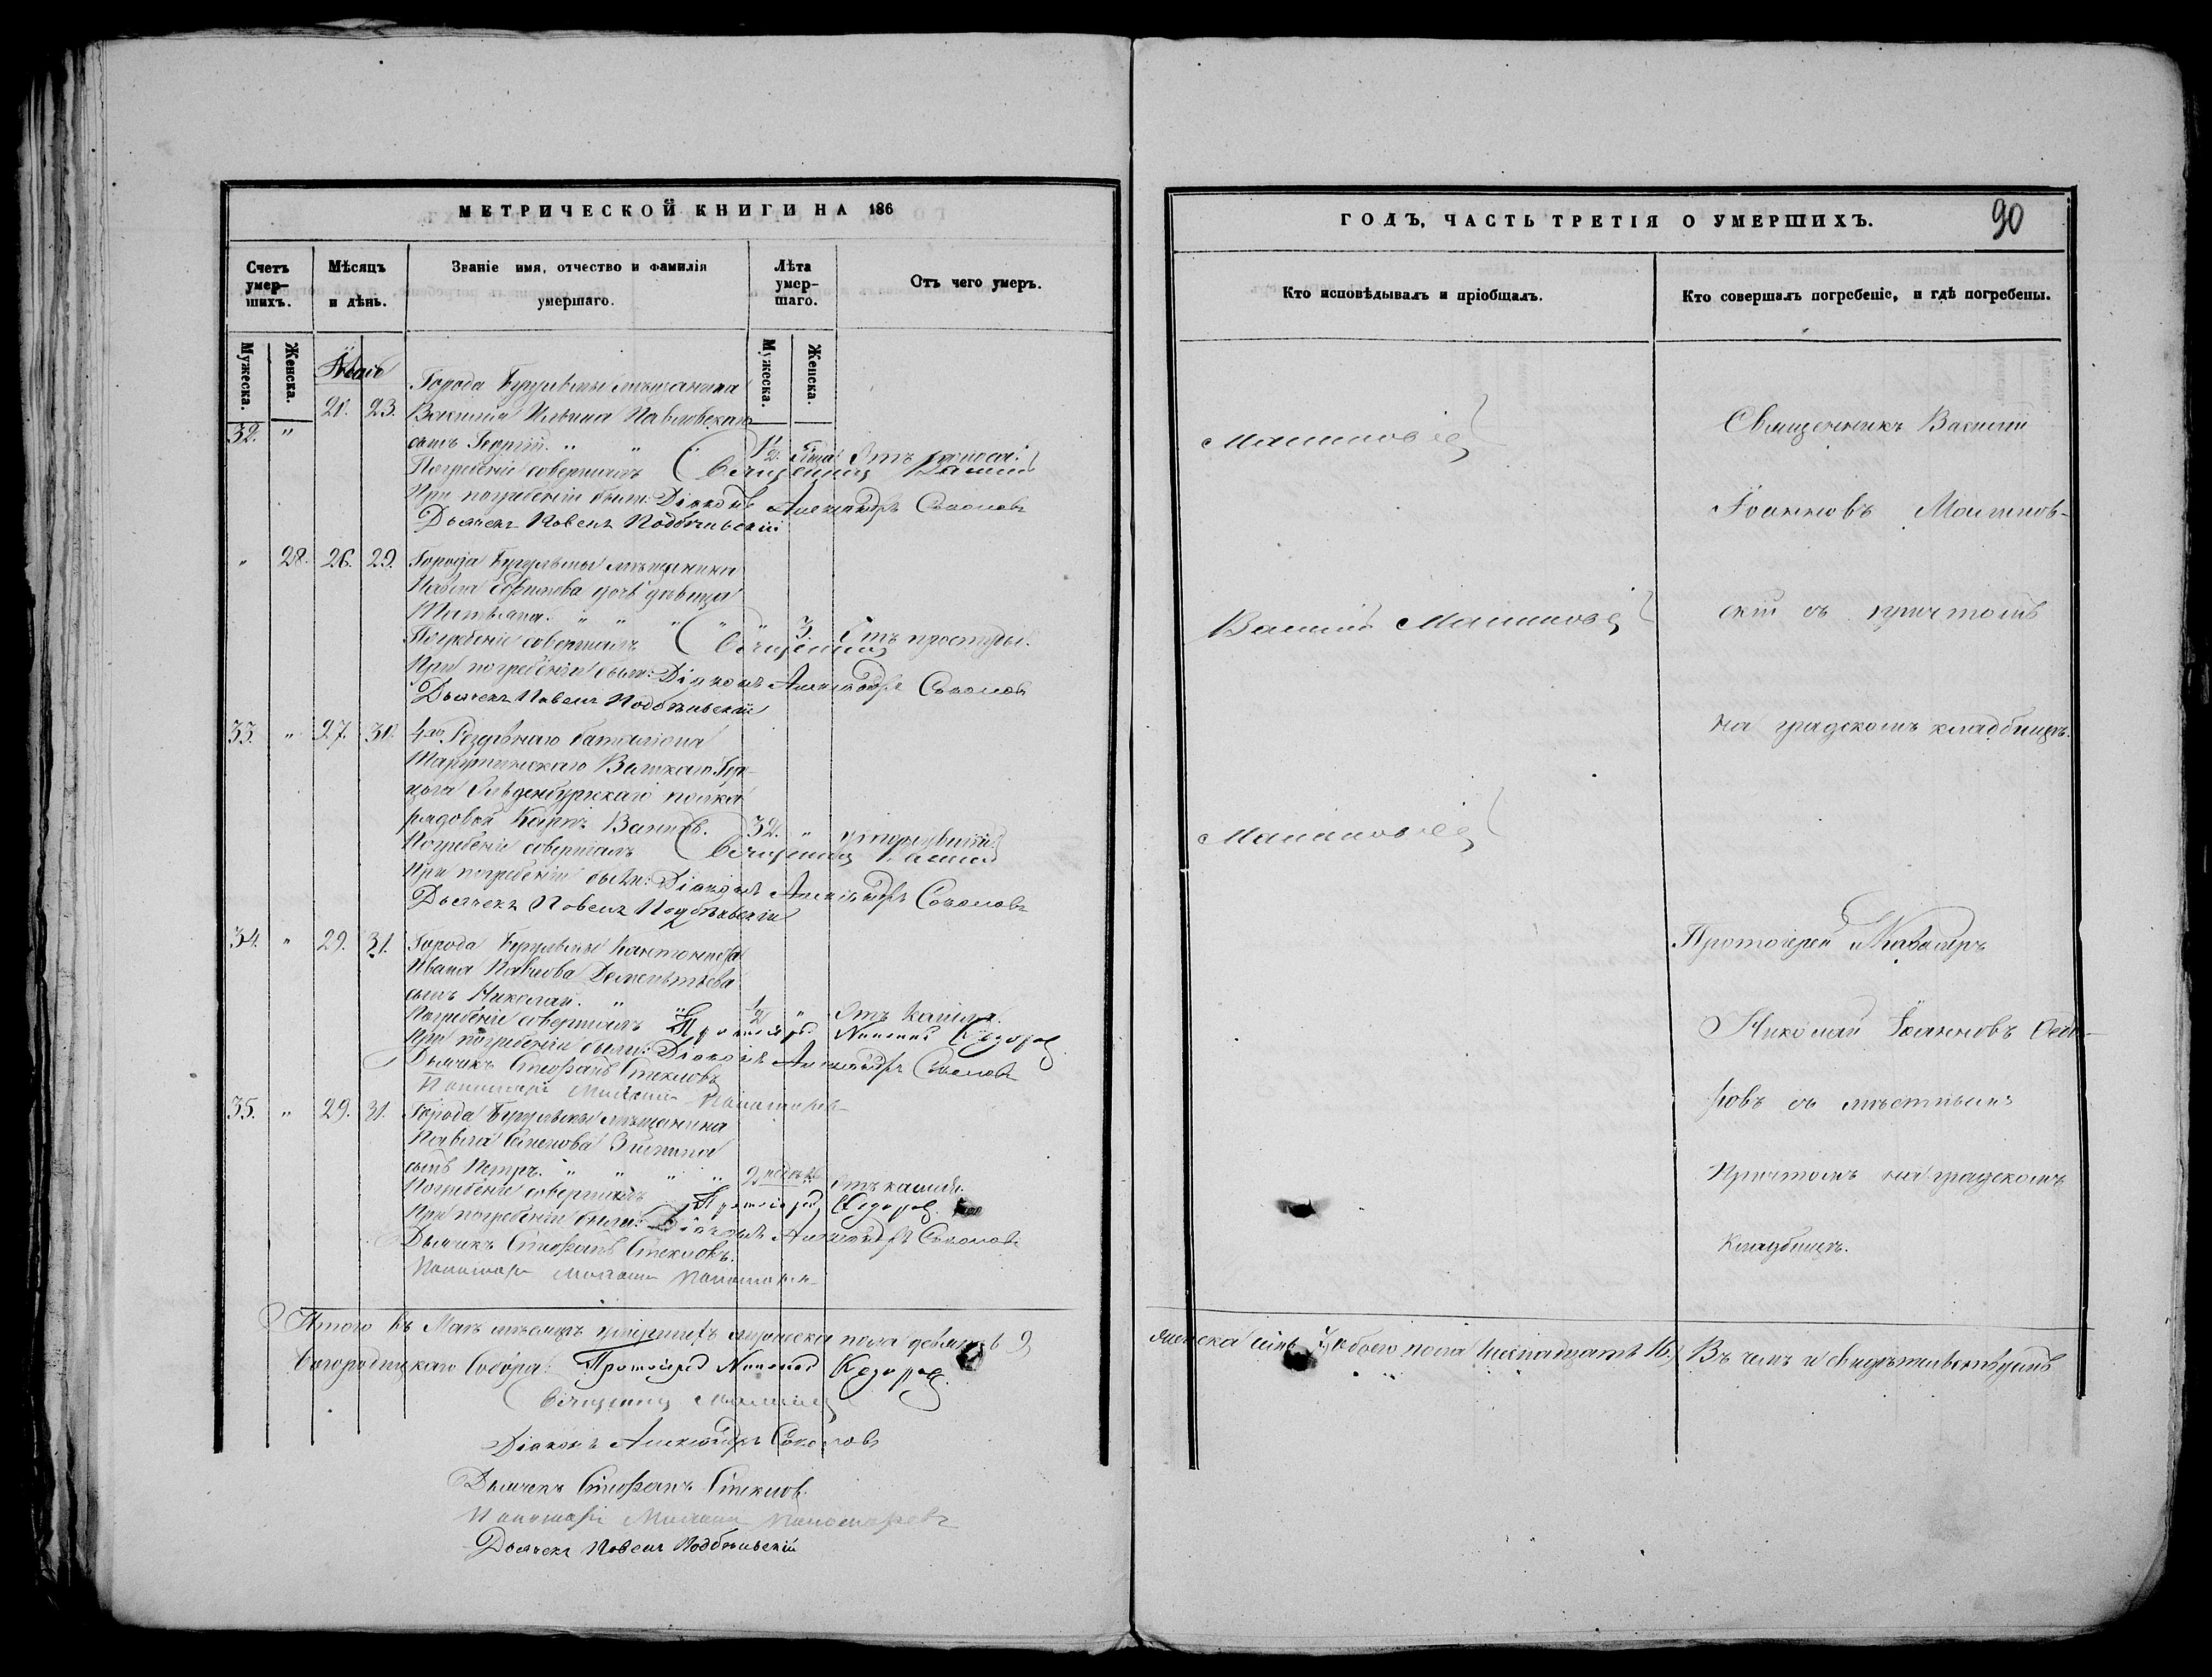 МЕТРИЧЕСКОЙ КНИГИ НА 186
Счетъ умер-шихъ.
Мѣсяцъ и день.
Званіе имя, отчество и фамилія умершаго.
Лѣта умер-шаго.
Отъ чего умеръ.
Мужеска. Женска.
Мужеска. Женска.
Май
Города Бугульмы мѣщанина
21. 23. Василія Ильина Павловскаго
32. " сынъ Георгій. " " " 1/2 года Отъ поноса.
Погребеніе совершалъ Священникъ Василій
При погребеніи были: Діаконъ Александръ Соколовъ
Дьячекъ Павелъ Подбѣльскій
" 28. 26. 29. Города Бугульмы мѣщанина
Павла дочь дѣвица
Татьяна. " " " " " 3. Отъ простуды.
Погребеніе совершалъ Священникъ
При погребеніи были: Діаконъ Александръ Соколовъ
Дьячекъ Павелъ Подбѣльскій
33. " 27. 30. 4го Резервнаго баталіона
Тарутинскаго Великаго Гер-
цога Ольденбургскаго полка
рядовой Карпъ 32. "
Погребеніе совершалъ Священникъ Василій
При погребеніи были: Діаконъ Александръ Соколовъ
Дьячекъ Павелъ Подбѣльскій
34. " 29. 31. Города Бугульмы Кантониста
Ивана Павлова Дементьева
сынъ Николай. " " 1/2 " Отъ кашля.
Погребеніе совершалъ Протоіерей Николай Ѳедоровъ
При погребеніи были: Діаконъ Александръ Соколовъ
Дьячекъ Стефанъ Стекловъ
Пономарь Михаилъ Пономаревъ
35. " 29. 31. Города Бугульмы мѣщанина
Павла Семенова
сынъ Петръ. " " " " 2 недѣль Отъ кашля.
Погребеніе совершалъ Протоіерей Ѳедоровъ
При погребеніи были: Діаконъ Александръ Соколовъ
Дьячекъ Стефанъ Стекловъ.
Пономарь Михаилъ Пономаревъ
Итого въ Маѣ мѣсяцѣ умершихъ мужеска пола девять 9,
Богородицкаго Собора: Протоіерей Николай Ѳедоровъ.
Священникъ Малиновскій
Діаконъ Александръ Соколовъ
Дьячекъ Стефанъ Стекловъ.
Пономарь Михаилъ Пономаревъ
Дьячекъ Павелъ Подбѣльскій
ГОДЪ, ЧАСТЬ ТРЕТІЯ О УМЕРШИХЪ.
90
Кто исповѣдывалъ и пріобщалъ.
Кто совершалъ погребеніе, и гдѣ погребены.
Малиновскій
Священникъ Василій
Іоанновъ Малинов-
Василій Малиновскій
скій съ причтомъ
на градскомъ кладбищѣ.
Малиновскій
Протоіерей и Кавалеръ
Николай Іоанновъ Ѳедо-
ровъ съ мѣстнымъ
Причтомъ на градскомъ
Кладбищѣ.
женска семь 7, обоего пола шестнадцать 16. Въ чемъ и свидѣтельствуемъ